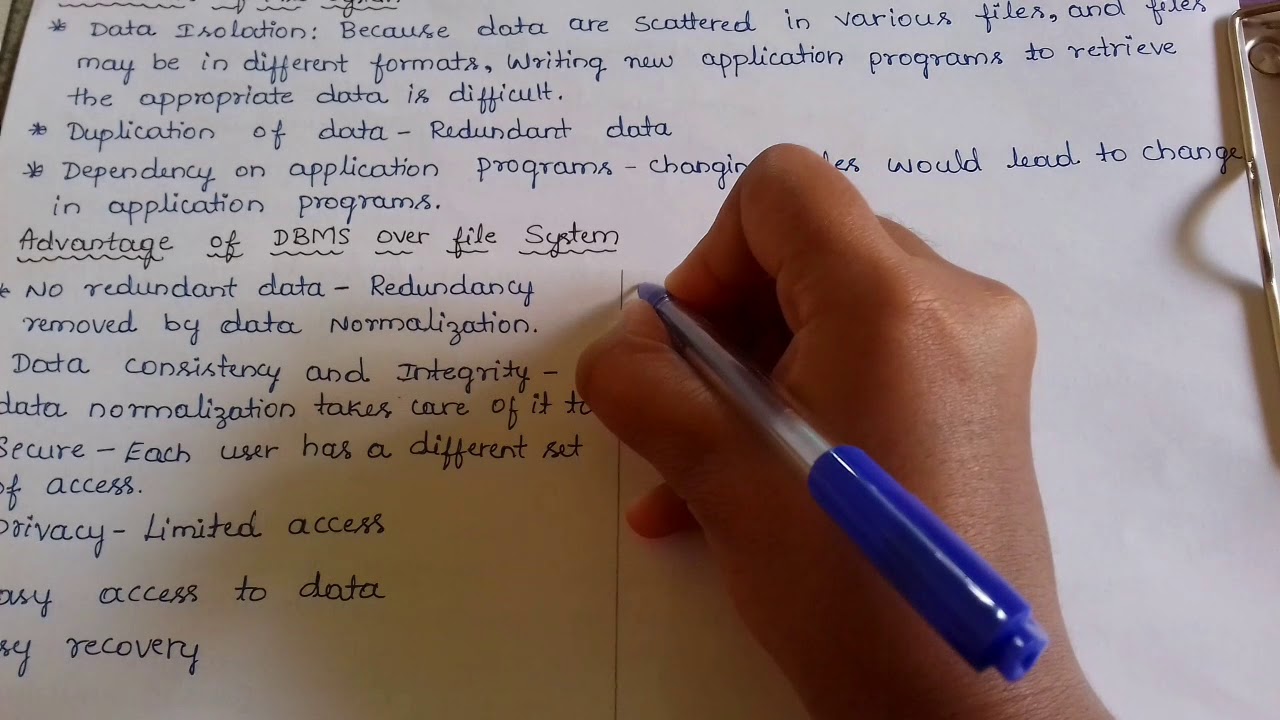 * Data Isolation: Because data are scattered in various files, and files
may be in different formats, writing new application programs to retrieve
the appropriate data is difficult.
* Duplication of data - Redundant data
* Dependency on application programs - changing would lead to change
in application programs.
Advantage of DBMS over file System
* No redundant data - Redundancy
removed by data Normalization.
Data consistency and Integrity -
data normalization takes care of it
Secure - Each user has a different set
of access.
privacy - Limited access
access to data
recovery